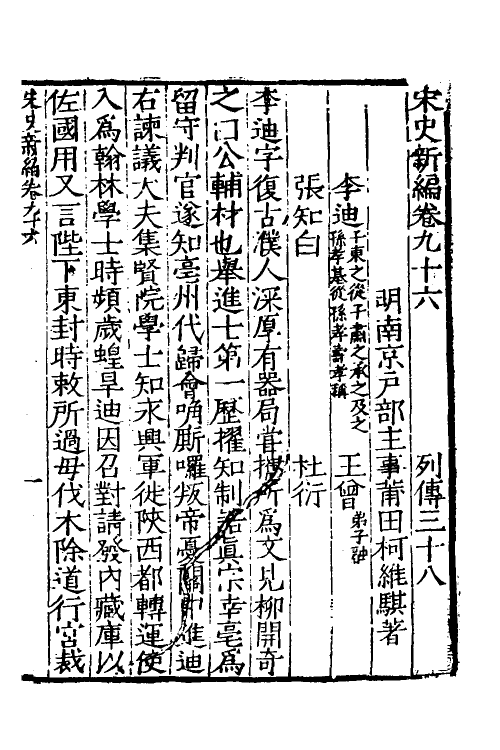 宋史新編卷九十六　列傳三十八
明南京戶部主事莆田柯維騏著
李迪 子柬之從子肅之承之及之
孫孝基從孫孝壽孝稱 王曾 弟子融
張知白　杜衍
李迪字復古濮人深厚有器局嘗攜所爲文見柳開奇
之曰公輔材也舉進士第一歷擢知制誥眞宗幸亳爲
留守判官遂知亳州代歸會唃厮囉叛帝憂關中進迪
右諫議大夫集賢院學士知永興軍徙陝西都轉運使
入爲翰林學士時頻歲蝗旱迪因召對請發內藏庫以
佐國用又言陛下東封時敕所過毋伐木除道行宮裁
宋史新編卷九十六　一